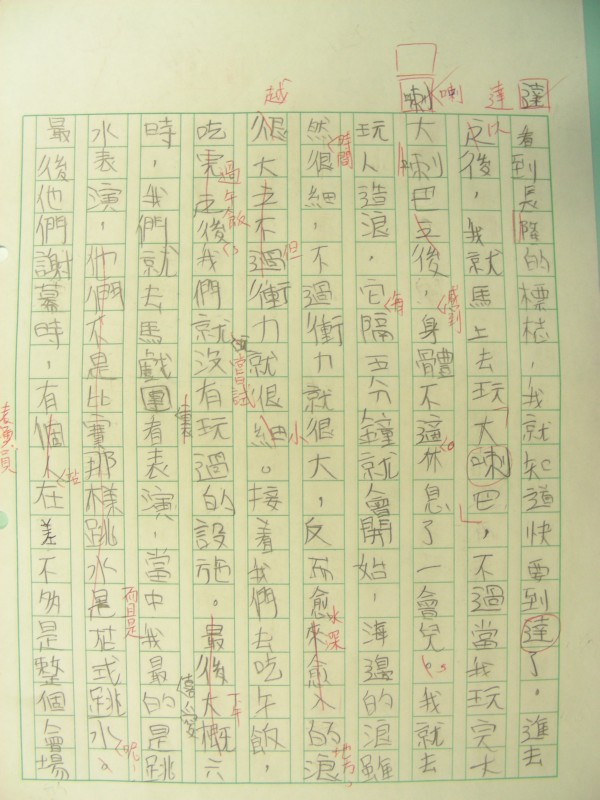 達
達
喇
喇
越
看到長隆的標桔，我就知道快要到達了，進去
之後，我就馬上去玩大喇巴，不過當我玩完大
以
大喇巴之後，身體不適休息了一會兒，我就去
感到
玩人造浪，它隔五分鐘就會開始，海邊的浪雖
每
然很細，不過衝力就很大，反而愈來愈大的浪
時間
水深
地方
很大之不過衝力就很細。接着我們去吃午飯，
但
小
吃完之後我們就沒有玩過的設施。最後大概六
過午飯
嘗試
下午
時，我們就去馬戲團看表演，當中我最的是跳
喜歡
水表演，他們不是比賽那樣跳水是花式跳水，
而且是
呢
最後他們謝幕時，有個人在差不多是整個會場
表演員